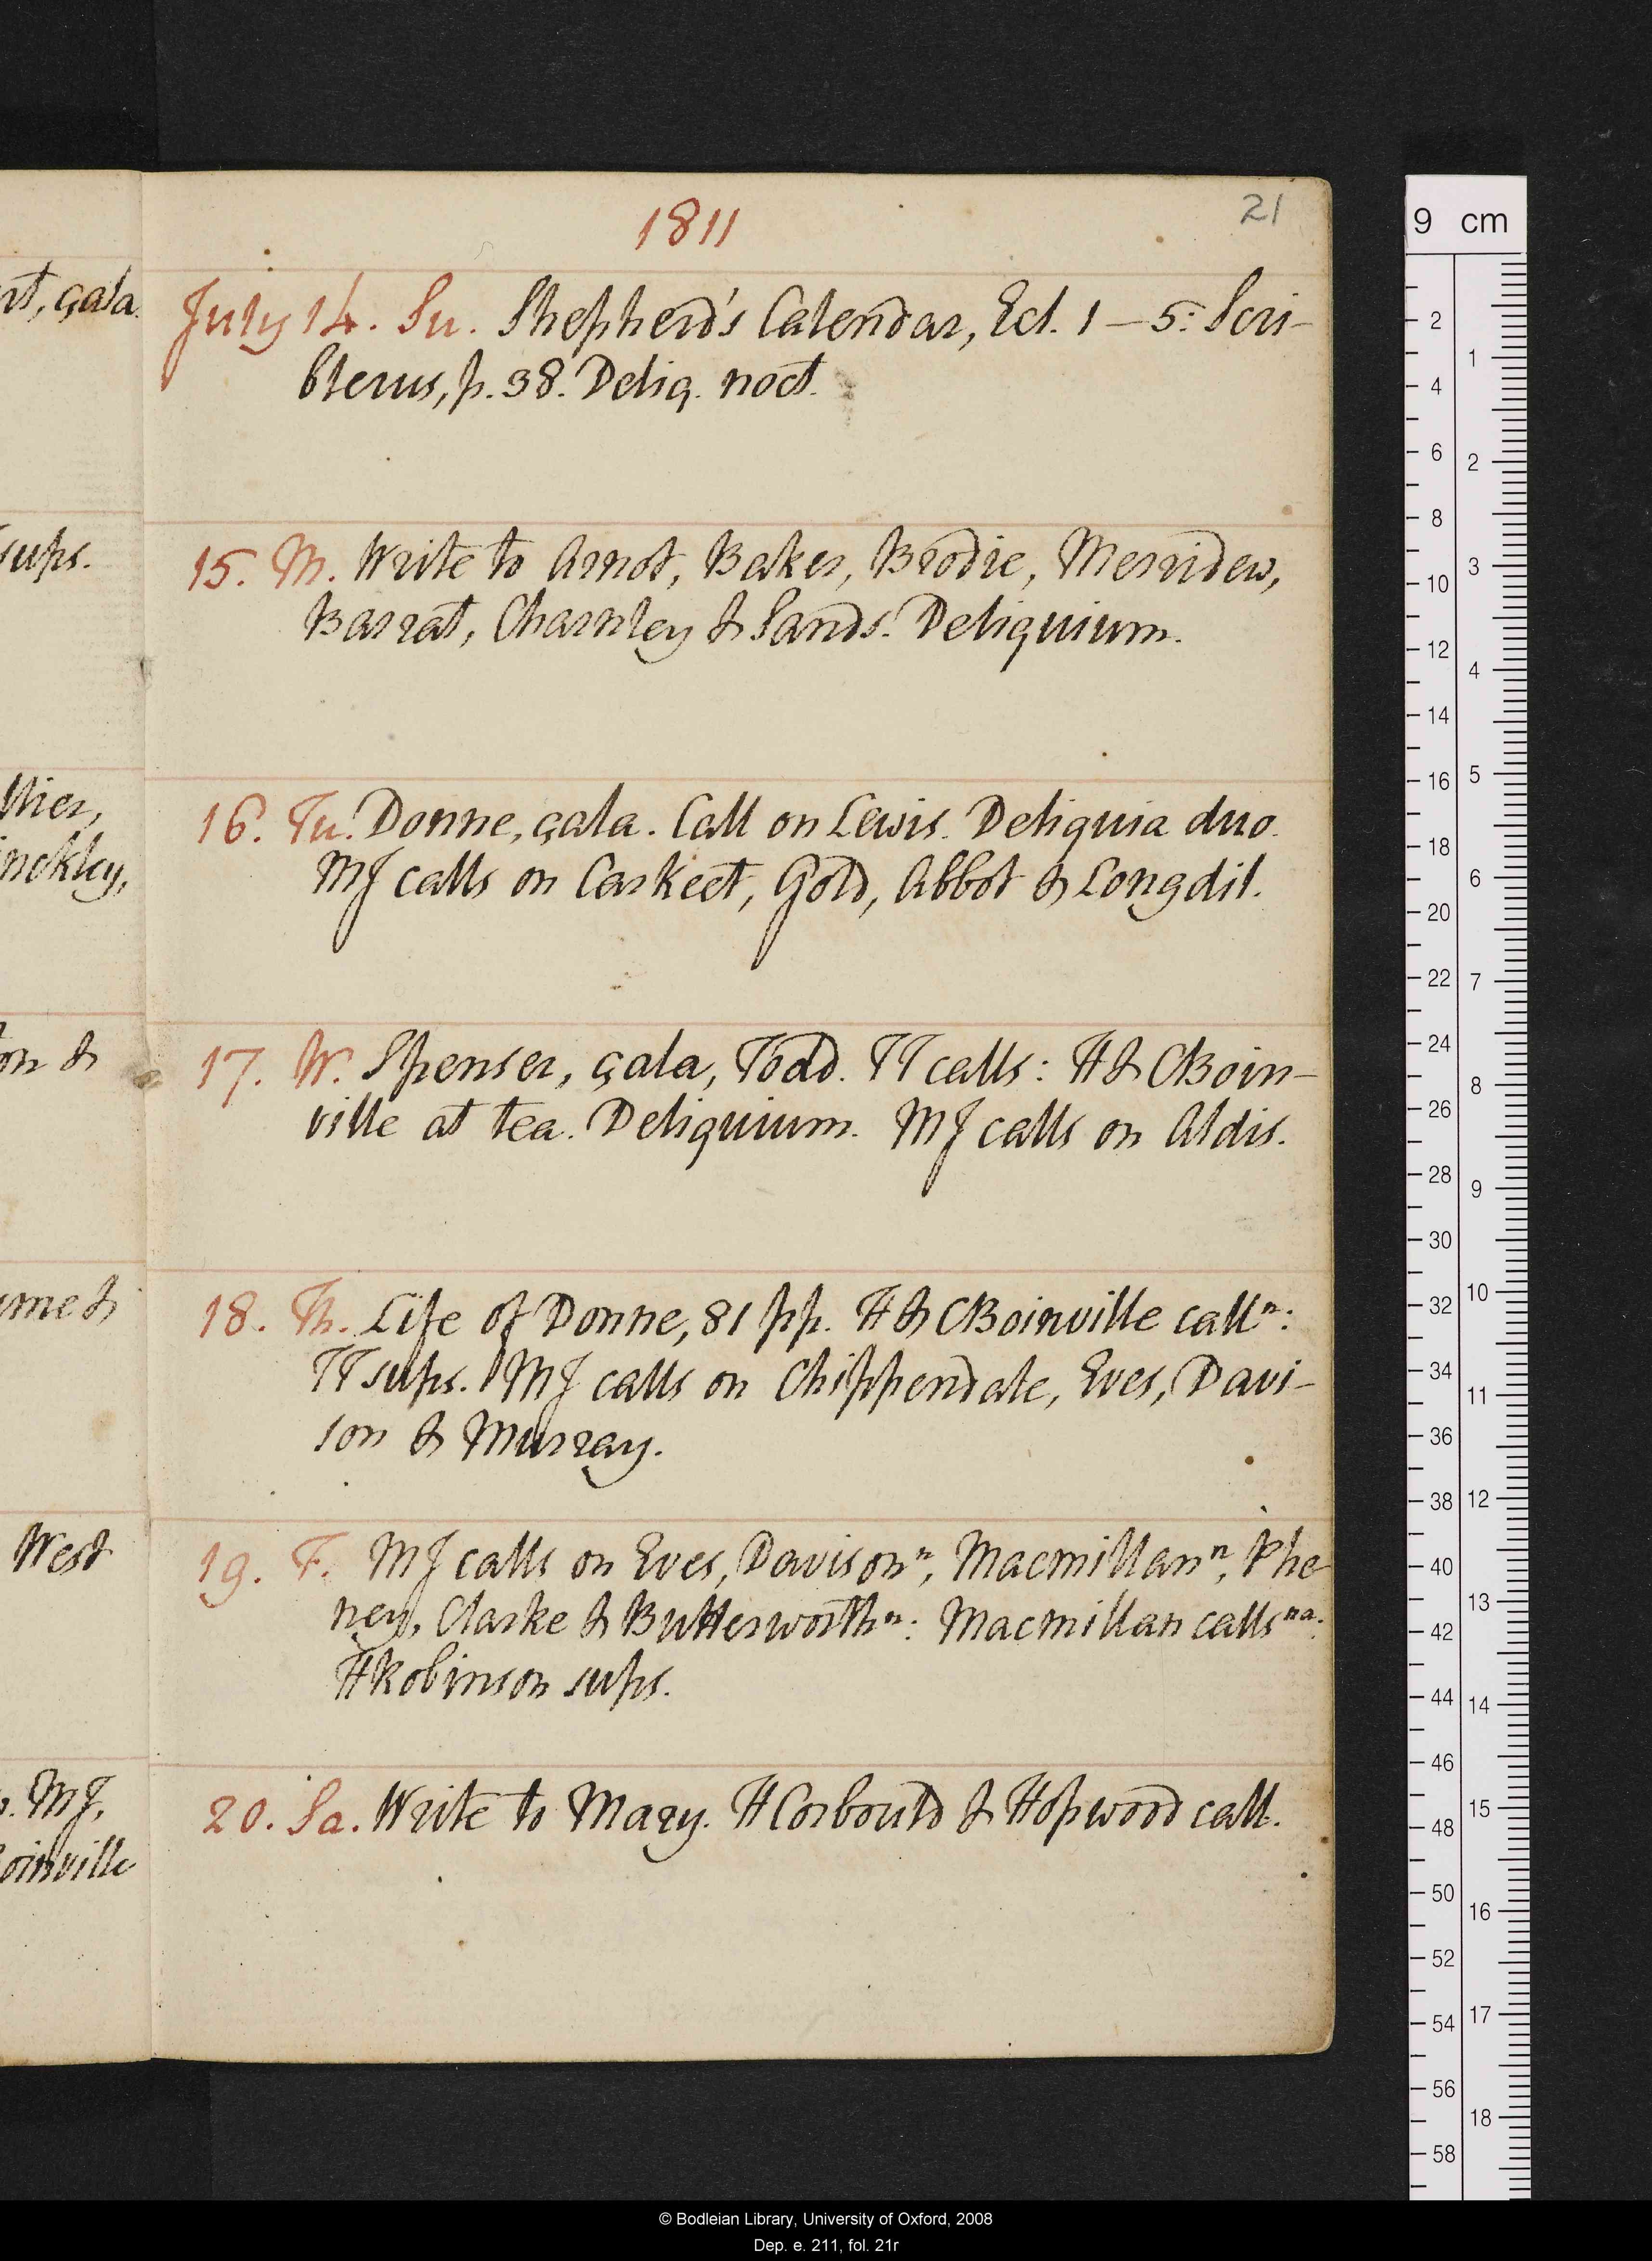 1811
21
rt, çala.
July 14. Su. Shepherd's Calendar, Ecl. 1 – 5: Scri-
blerus, p. 38. Deliq. noct.
sups.
15. M. Write to Arnot, Baker, Brodie, Merridew,
Barrat, Charnley & Sands. Deliquium.
thier,
nckley,
16. Tu. Donne, çala. Call on Lewis. Deliquia duo.
MJ calls on Carkeet, Gold, Abbot & Longdil.
on &
17. W. Spenser, çala, Todd. TT calls: H & CBoin-
ville at tea. Deliquium. MJ calls on Aldis.
ume &
18. Th. Life of Donne, 81 pp. H & CBoinville call n:
TT sups. MJ calls on Chippendale, Eves, Davi-
son & Murray.
West
19. F. MJ calls on Eves, Davison n, Macmillan n, Phe-
ney, Clarke & Butterworth n: Macmillan calls na:
HRobinson sups.
MJ,
oinville
20. Sa. Write to Mary. HCorbould & Hopwood call.
9 cm
2
4
6
8
10
12
14
16
18
20
22
24
26
28
30
32
34
36
38
40
42
44
46
48
50
52
54
56
58
1
2
3
4
5
6
7
8
9
10
11
12
13
14
15
16
17
18
© Bodleian Library, University of Oxford, 2008
Dep. e. 211, fol. 21r